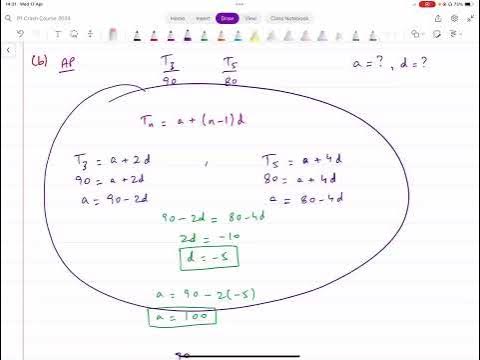 14:31 Wed 17 Apr
P1 Crash Course 2024
Insert
Draw
View
Class Notebook
(b) AP T₃ T₅ a = ? , d = ?
90 80
Tₙ = a + (n-1)d
T₃ = a + 2d , T₅ = a + 4d
90 = a + 2d 80 = a + 4d
a = 90 - 2d a = 80 - 4d
90 - 2d = 80 - 4d
2d = -10
d = -5
a = 90 - 2(-5)
a = 100